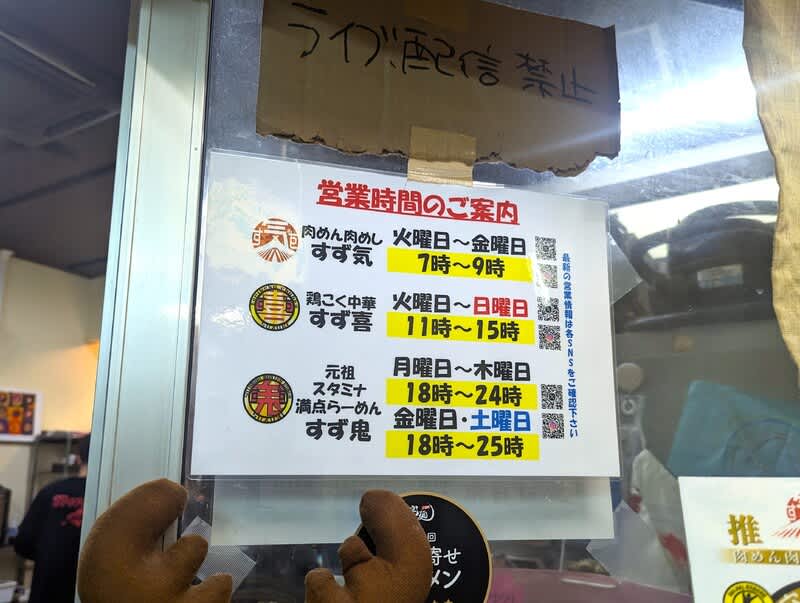 ライブ配信 禁止
営業時間のご案内
肉めん肉めし
すず気
火曜日～金曜日
7時～9時
鶏こく中華
すず喜
火曜日～日曜日
11時～15時
元祖
スタミナ
満点らーめん
すず鬼
月曜日～木曜日
18時～24時
金曜日・土曜日
18時～25時
最新の営業情報は各SNSをご確認下さい
回
寄せ
メン
推
肉めん肉